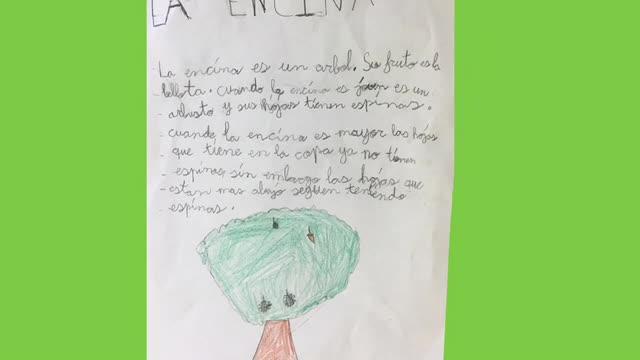 LA ENCINA
La encina es un arbol. Su fruto es la
bellota. cuando la encina es joven es un
arbusto y sus hojas tienen espinas.
cuando la encina es mayor las hojas
que tiene en la copa ya no tienen
espinas, sin embargo las hojas que
estan mas abajo seguen teniendo
espinas.